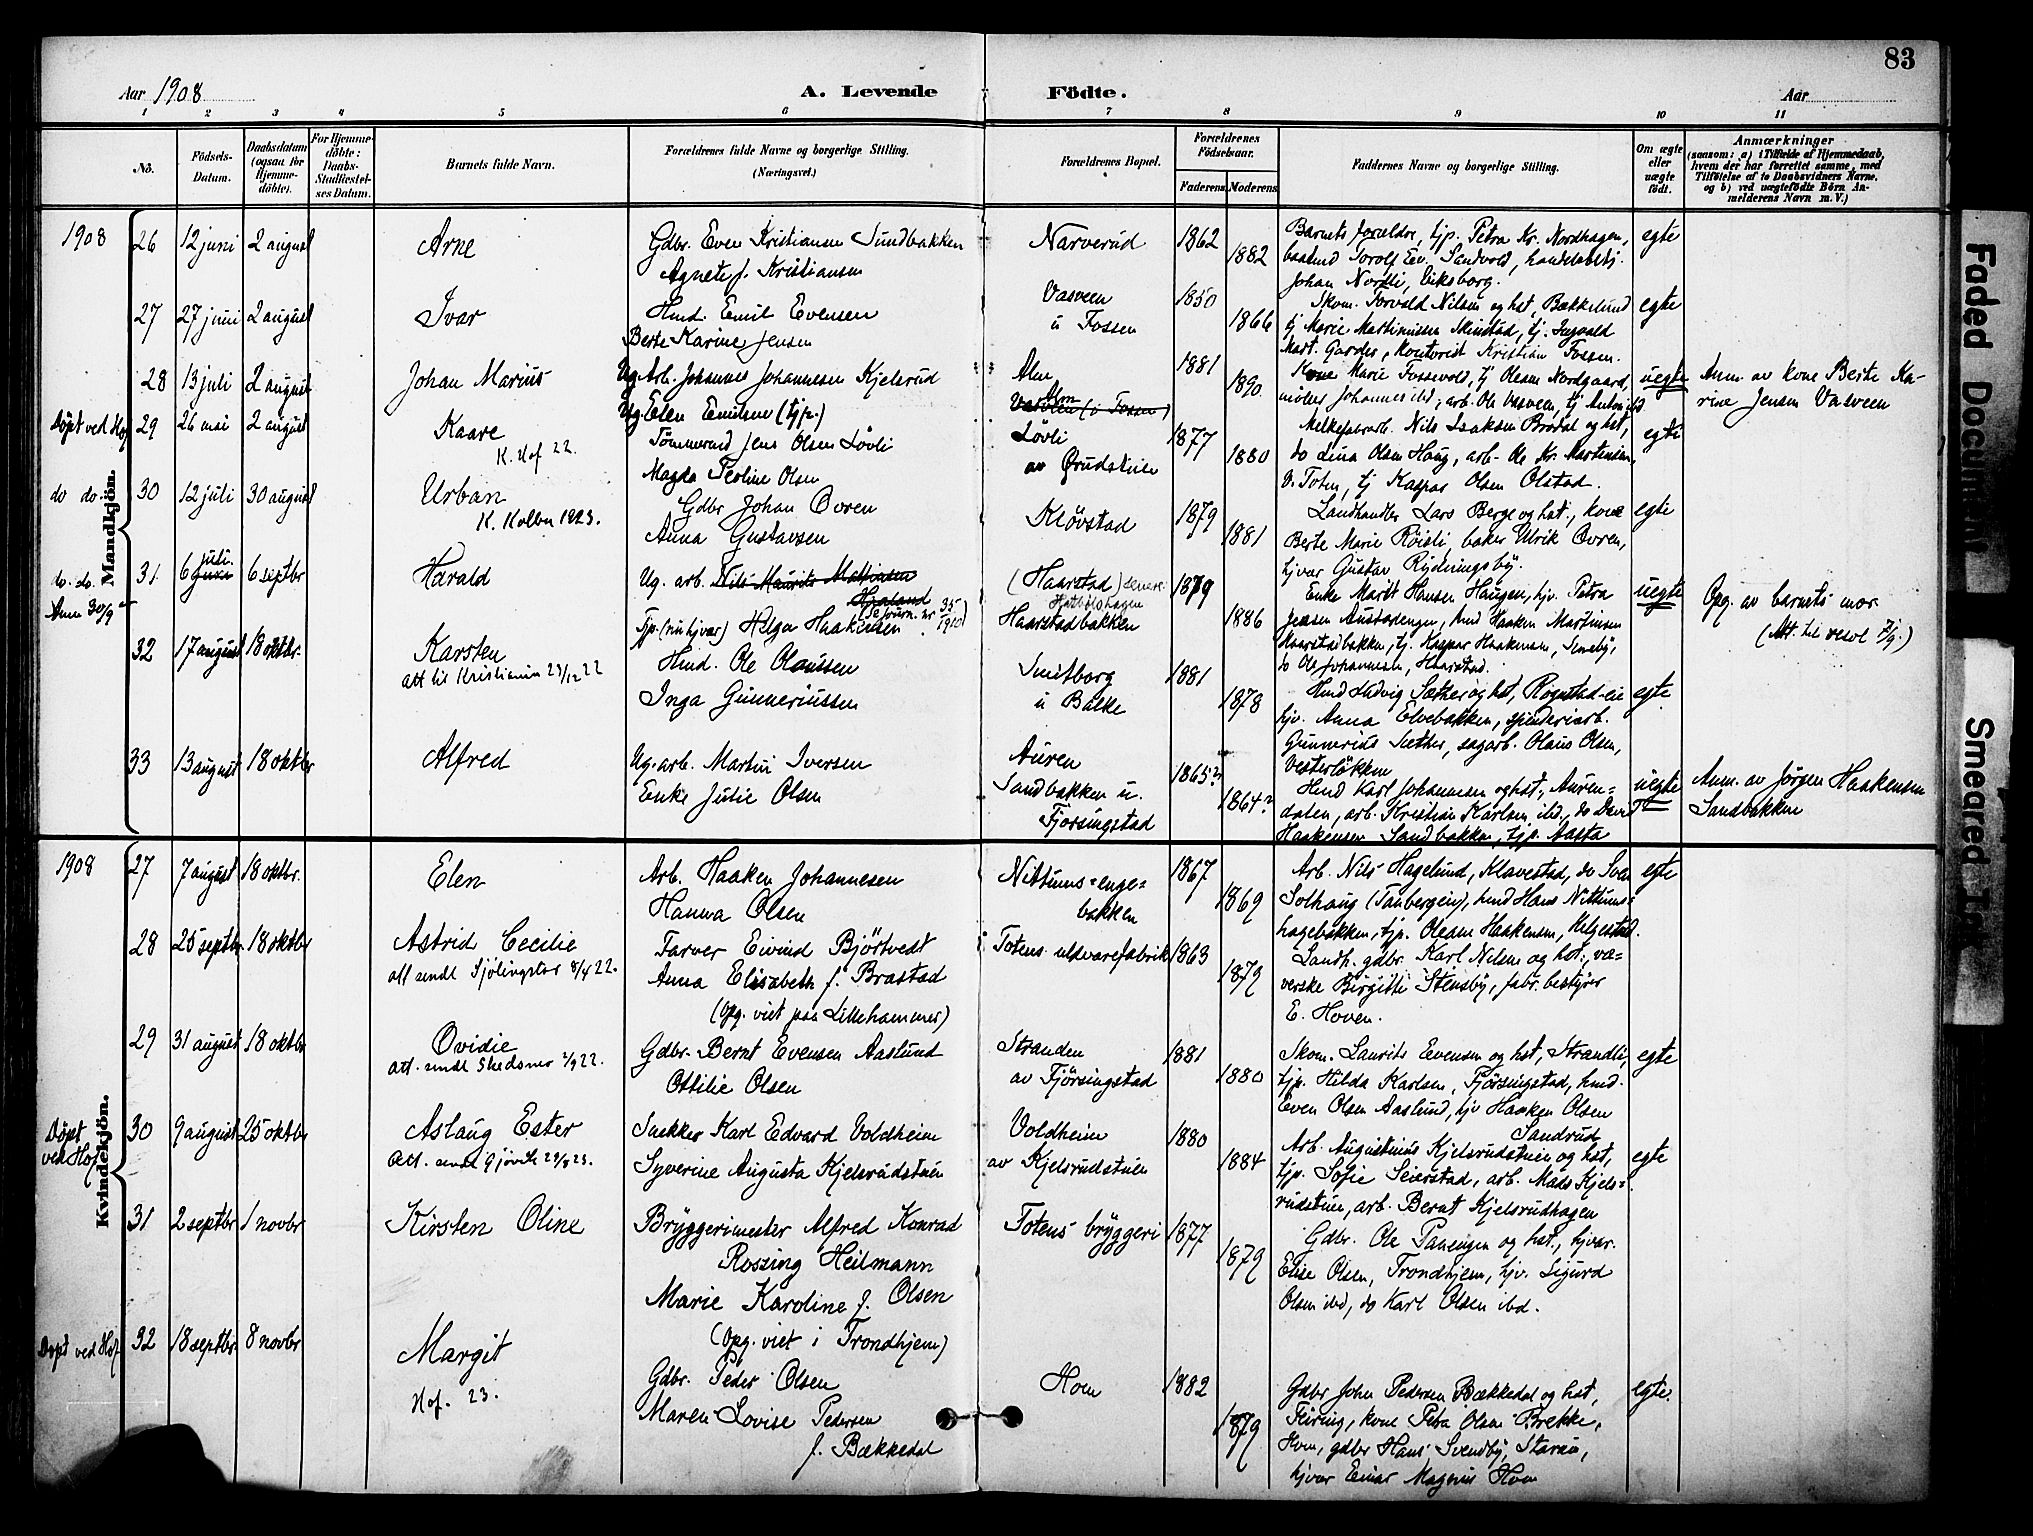 83
Aar 1908
A. Levende Födte.
Aar
1 2 3 4 5 6 7 8 9 10 11
No.
Födsels-Datum.
Daabsdatum (ogsaa for Hjemme-döbte).
For Hjemme-döbte: Daabs-Stadfæstel-ses Datum.
Barnets fulde Navn.
Forældrenes fulde Navne og borgerlige Stilling. (Næringsvei.)
Forældrenes Bopæl.
Forældrenes Födselsaar.
Faderens Moderens
Faddernes Navne og borgerlige Stilling.
Om ægte eller uægte födt.
Anmærkninger
(saasom: a) i Tilfælde af Hjemmedaab, hvem der har forrettet samme, med Tilföielse af to Daabsvidners Navne, og b) ved uægtefödte Börn An-melderens Navn m. V.)
Mandkjön.
1908 26 12 juni 2 august Arne
Gdbr. Even Kristiansen Sundbakken
Agnete f. Kristiansen
Narverud 1862 1882
Barnets forældre, tjp. Petra Kr. Nordhagen,
Johan Nordli, Eiksborg.
egte
27 27 juni 2 august Ivar
Hmd. Emil Evensen
Berte Karine Jensen
Vasveen
u Fossen
1850 1866
Skom. Torvald Nilsen og hst, Bækkelund
tj Marie Martinussen Skinstad, tj. Ingvald
Mart. Garder, kontorist Kristian Fossen.
egte
28 13 juli 2 august Johan Marius
Ug. Arb. Johannes Johannesen Kjelsrud
Ug. Elen Emilene (tjp.)
Alm
Vasveen (u Fossen)
1881 1890
Kone Marie Fossevold, tj Oleam Nordgaard,
møller Johannes ibd, arb. Ole Vasveen, tj Anton ibd
uegte
Anm. av kone Berte Ka-
rine Jensen Vasveen
Döpt ved Hof 29 26 mai 2 august Kaare
K. Hof 22.
Tømmermd Jens Olsen Løvli
Magda Teoline Olsen
Løvli
av Grudstuen
1877 1880
Melkefabrarb. Nils Isaksen Brodal og hst,
do Lina Olsen Haug, arb. Ole Kr. Martinsen,
V. Toten, tj Kaspar Olsen Olstad.
egte
do do. 30 12 juli 30 august Urban
K. Kolbu 1923.
Gdbr Johan Ovren
Anna Gustavsen
Kløvstad
1879 1881
Landhandler Lars Berge og hst., kone
Berte Marie Røisli, baker Ulrik Ovren,
hjvær Gustav Rydningsby.
egte
do. do.
Anm 30/9
31. 6 juli 6 septbr Harald
Ug. arb. Nils Maurits Mathiasen
Hjaland
(se anm. nr 35 1910)
Tjp. (nu hjvær) Helga Haakensen
(Haarstad) senere
Hatbølshagen
Haarstadbakken
1879 1886
Enke Marit Hansen Haugen, hjv. Petra
Jensen Austadenger, hmd Haaken Martinsen
Haarstadbakken, tj. Kaspar Haakensen, Sineby,
do Ole Johannesen, Haarstad.
uegte
Opg. av barnets mor
(Att. til vesol 7/9.)
32 17 august 18 oktbr. Karsten
att til Kristiania 27/12 22
Hmd. Ole Olaussen
Inga Gunneriussen
Smitborg
u Balke
1881 1878
Hmd Ludvig Sæther og hst, Rognstad-eie
hjv. Anna Elvebakken, spinderiarb.
Gunnerius Sæther, sagarb. Olaus Olsen,
Vesterløkken
egte
33 13 august 18 oktbr Alfred
Ug. arb. Martin Iversen
Enke Julie Olsen
Auren
Sandbakken u.
Fjorsingstad
1865? 1864?
Hmd Karl Johannesen og hst, Auren-
dalen, arb. Kristian Karlsen ibd, do David
Haakensen Sandbakken, tjp. Aasta
uegte
Anm. av Jørgen Haakensen
Sandbakken
Kvindekjön.
1908 27 7 august 18 oktbr. Elen
Arb. Haaken Johannesen
Hanna Olsen
Nittums=enge=
bakken
1867 1869
Arb. Nils Hagelund, Klavestad, do Sven
Solhaug (Taubergein), hmd Hans Nittums=
hagebakken, tjp. Oleane Haakensen, Helgestad.
egte
28 25 septbr. 18 oktbr Astrid Cecilie
att sendt Sjølingstad 8/4 22.
Farver Eivind Bjørtvedt
Anna Elisabeth f. Brastad
(Opg. viet paa Lillehammer)
Totens uldvarefabrik
1863 1879
Landh. gdbr. Karl Nilsen og hst., væ-
verske Birgitte Stensby, fabr. bestyrer
E. Hoven.
29 31 august 18 oktbr Ovidie
att. sendt Skedsmo 2/9 22.
Gdbr. Bernt Evensen Aaslund
Ottilie Olsen
Stranden
av Fjørsingstad
1881 1880
Skom. Laurits Evensen og hst, Strandli,
tjp. Hilda Karlsen, Fjørsingstad, hmd.
Even Olsen Aaslund, tjv Haaken Olsen
Sandrud
egte
Döpt ved Hof
30 9 august 25 oktbr Aslaug Ester
Att. sendt Gjøvik 29/8 23.
Snekker Karl Edvard Voldheim
Syverine Augusta Kjelsrudstuen
Voldheim
av Kjelsrudstuen
1880 1884
Arb. Augustinus Kjelsrudstuen og hst,
tjp. Sofie Seierstad, arb. Mads Kjels=
rudstuen, arb. Bernt Kjelsrudhagen
egte
31 2 septbr 1 novbr Kirsten Oline
Bryggerimester Alfred Konrad
Rossing Heilmann
Marie Karoline f. Olsen
(Opg. viet i Trondhjem)
Totens bryggeri
1877 1879
Gdbr. Ole Pausingen og hst., hjvær.
Elise Olsen, Trondhjem, hjv. Sigurd
Olsen ibd, do Karl Olsen ibd.
Döpt ved Hof
32 18 septbr. 8 novbr Margit
Hof. 23.
Gdbr. Peder Olsen
Maren Lovise Pedersen
f. Bækkedal
Hom
1882 1879
Gdbr John Pedersen Bækkedal og hst,
Feiring, kone Petra Olsen Brekke,
Hom, gdbr Hans Svendby, Starum,
hjvær Einar Magnus Hom
egte.
Faded Document
Smeared Text